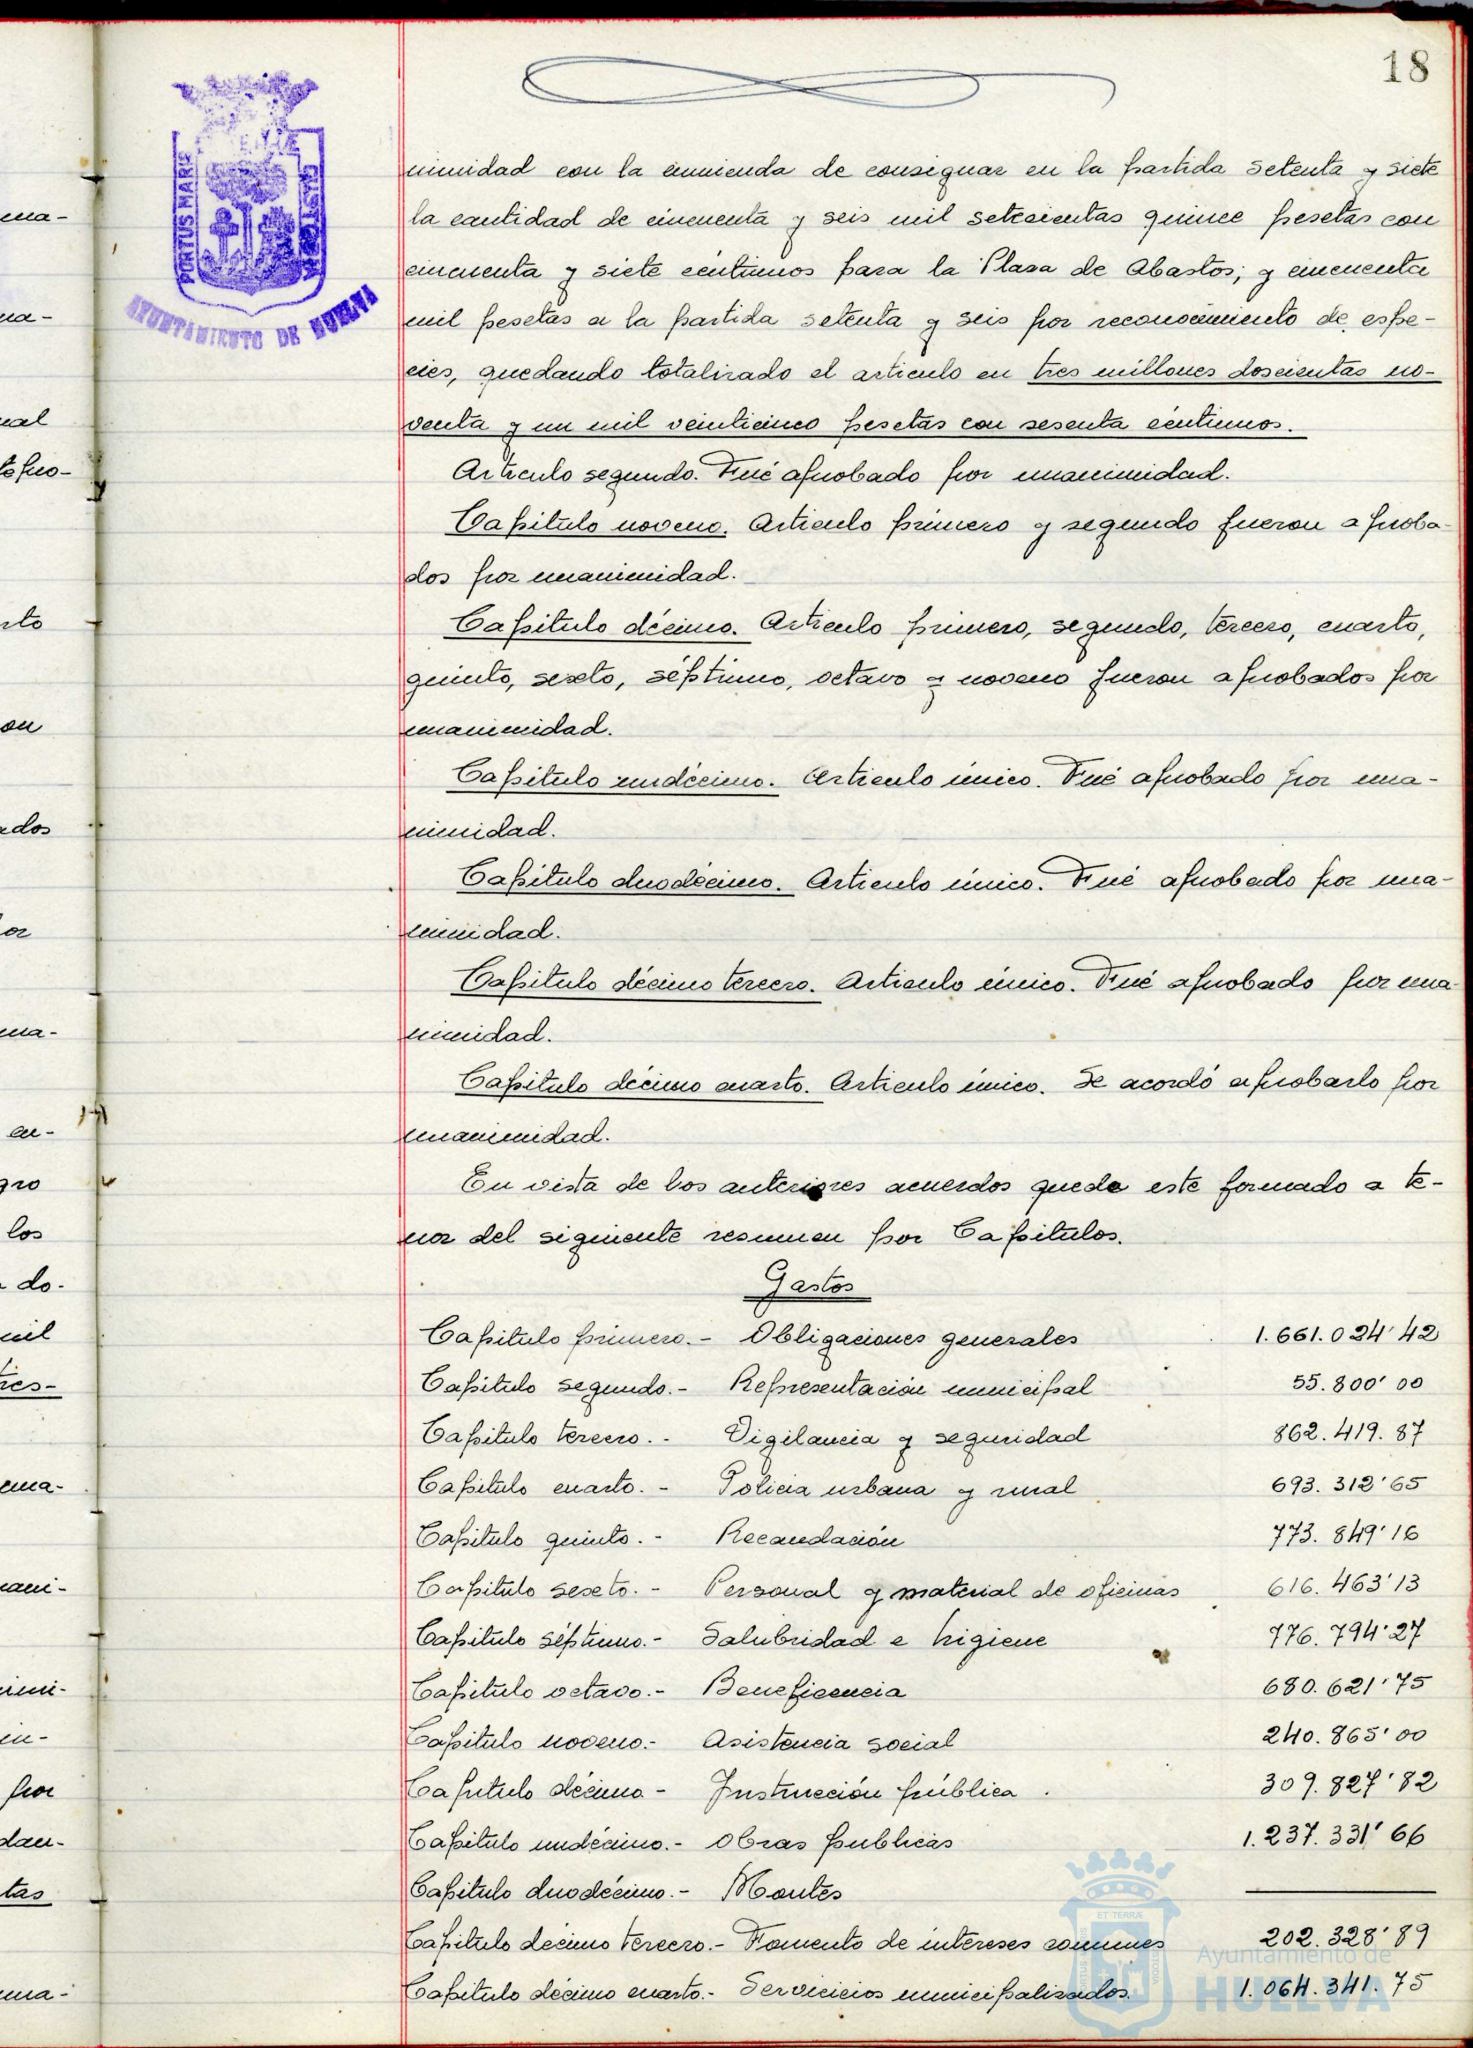 18
PORTUS MARIS
ET TERRÆ
CUSTODIA
AYUNTAMIENTO DE HUELVA
nimidad con la enmienda de consignar en la partida setenta y siete
la cantidad de cincuenta y seis mil setecientas quince pesetas con
cincuenta y siete céntimos para la Plaza de Abastos; y cincuenta
mil pesetas a la partida setenta y seis por reconocimiento de espe-
cies, quedando totalizado el articulo en tres millones doscientas no-
venta y un mil veinticinco pesetas con sesenta céntimos.
Articulo segundo. Fué aprobado por unanimidad.
Capitulo noveno. Articulo primero y segundo fueron aproba-
dos por unanimidad.
Capitulo décimo. Articulo primero, segundo, tercero, cuarto,
quinto, sexto, séptimo, octavo y noveno fueron aprobados por
unanimidad.
Capitulo undécimo. Articulo único. Fué aprobado por una-
nimidad.
Capitulo duodécimo. Articulo único. Fué aprobado por una-
nimidad.
Capitulo décimo tercero. Articulo único. Fué aprobado por una
nimidad.
Capitulo décimo cuarto. Articulo único. Se acordó aprobarlo por
unanimidad.
En vista de los anteriores acuerdos queda este formado a te-
nor del siguiente resumen por Capitulos.
Gastos
Capitulo primero.- Obligaciones generales 1.661.024'42
Capitulo segundo.- Representación municipal 55.800'00
Capitulo tercero.- Vigilancia y seguridad 862.419.87
Capitulo cuarto.- Policia urbana y rural 693.312'65
Capitulo quinto.- Recaudación 773.849'16
Capitulo sexto.- Personal y material de oficinas 616.463'13
Capitulo séptimo.- Salubridad e higiene 776.794'27
Capitulo octavo.- Beneficencia 680.621'75
Capitulo noveno.- Asistencia social 240.865'00
Capitulo décimo- Instrucción pública 309.827'82
Capitulo undécimo.- Obras publicas 1.237.331'66
Capitulo duodécimo.- Montes
Capitulo décimo tercero.- Fomento de intereses comunes 202.328'89
Capitulo décimo cuarto.- Servicicios municipalizados. 1.064.341.75
Ayuntamiento de
HUELVA